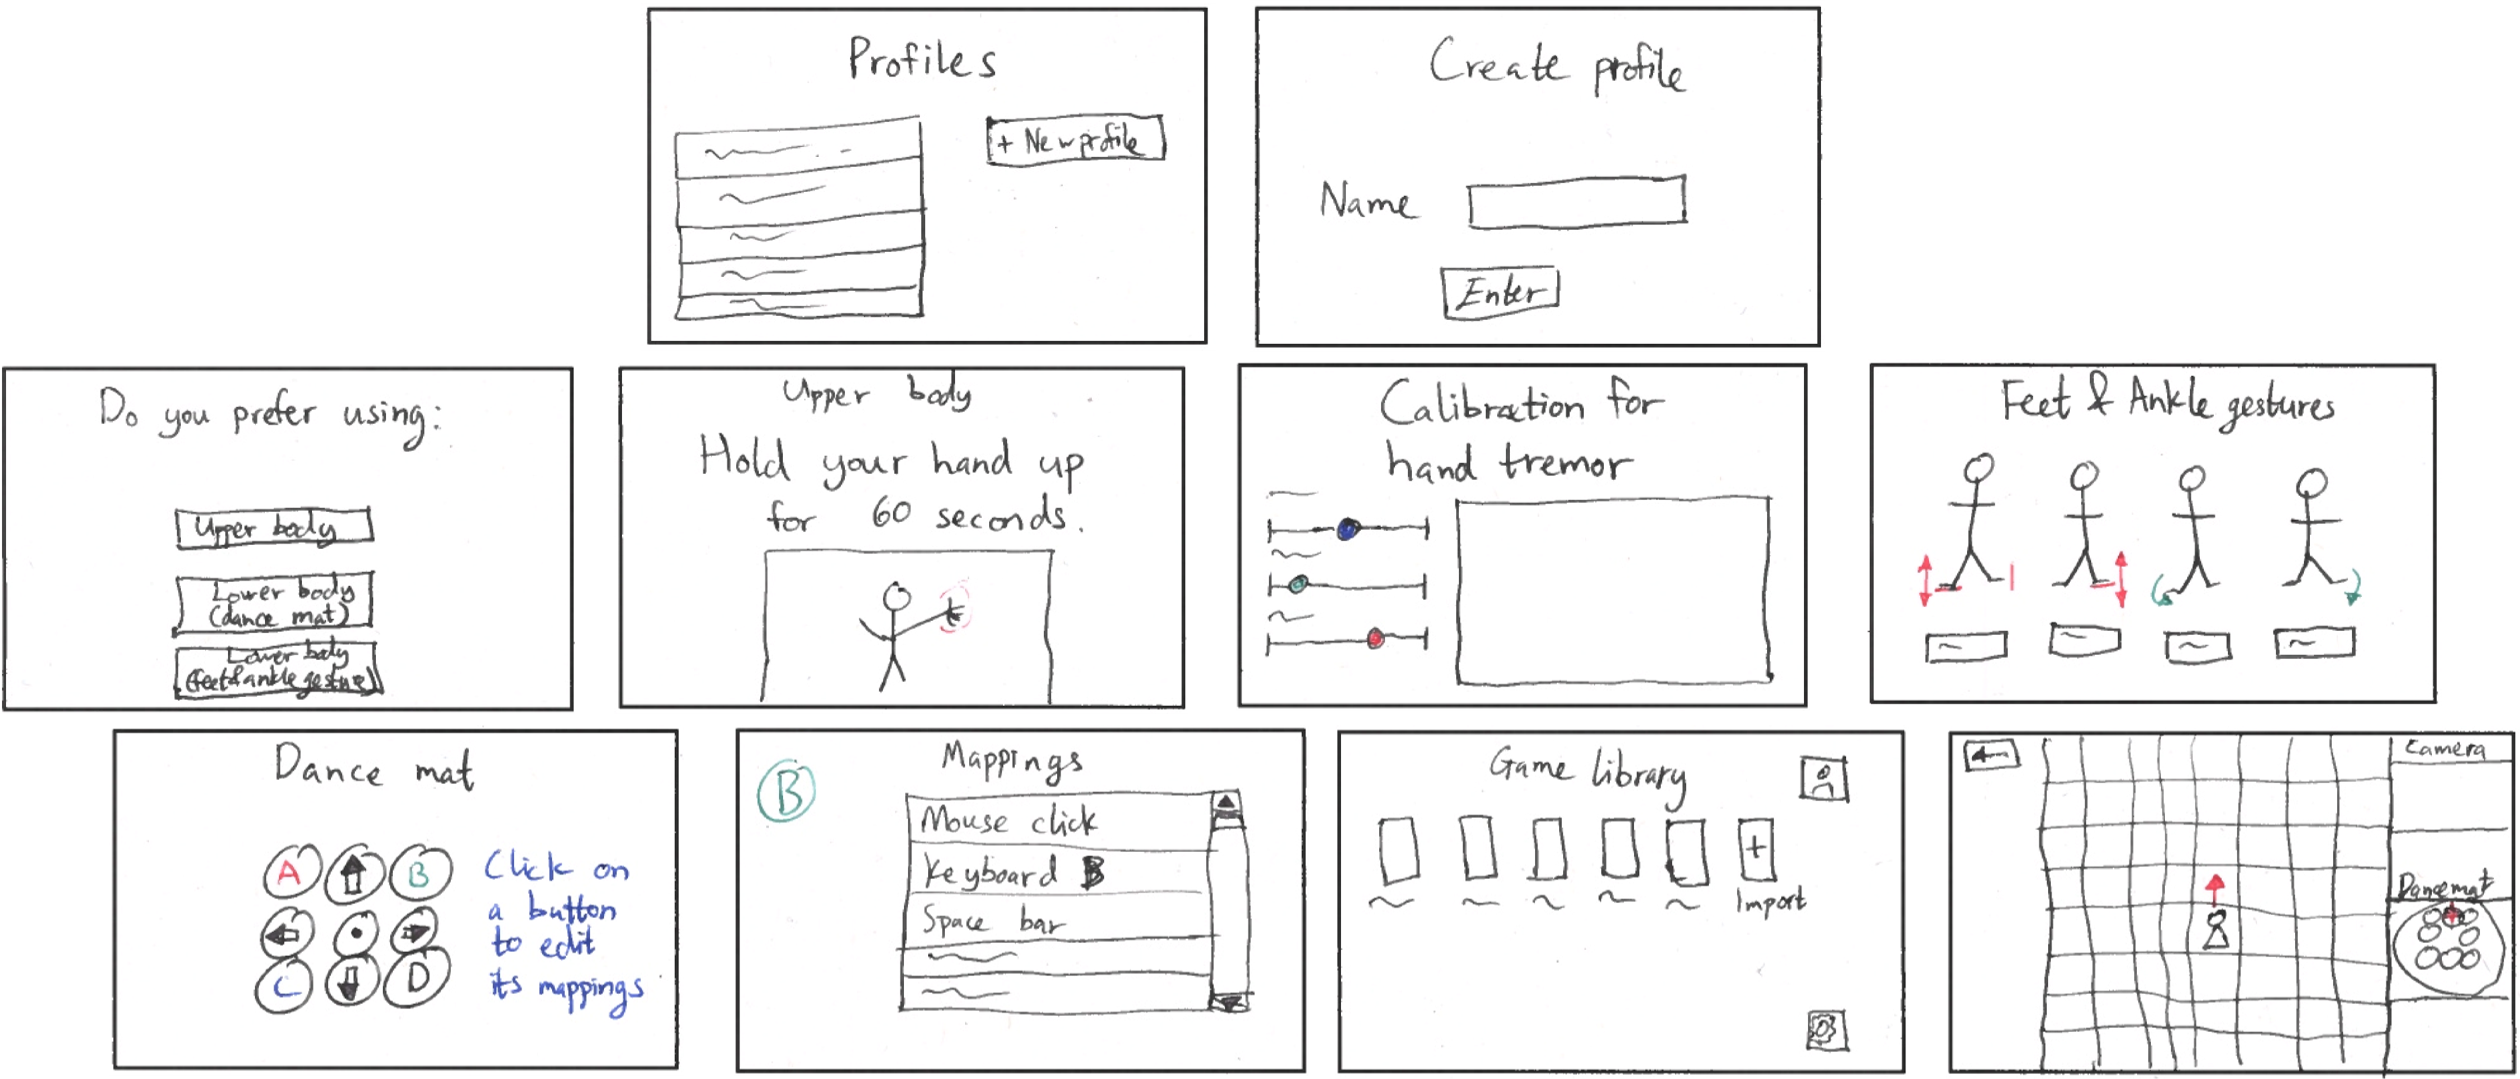 Profiles
+ New profile
Create profile
Name
Enter
Do you prefer using:
Upper body
Lower body
(dance mat)
Lower body
(feet & ankle gesture)
Upper body
Hold your hand up
for 60 seconds.
Calibration for
hand tremor
Feet & Ankle gestures
Dance mat
A
B
C
D
Click on
a button
to edit
its mappings
B
Mappings
Mouse click
Keyboard B
Space bar
Game library
Import
Camera
Dancemat